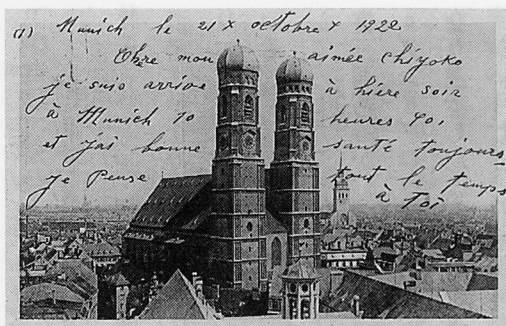 (1) Munich le 21 x octobre x 1922
Chre mon aimée chiyoko
je suis arrive à hière soir
à Munich 10 heures 40,
et j'ai bonne santé toujours
je Pense tout le temps
à Toi